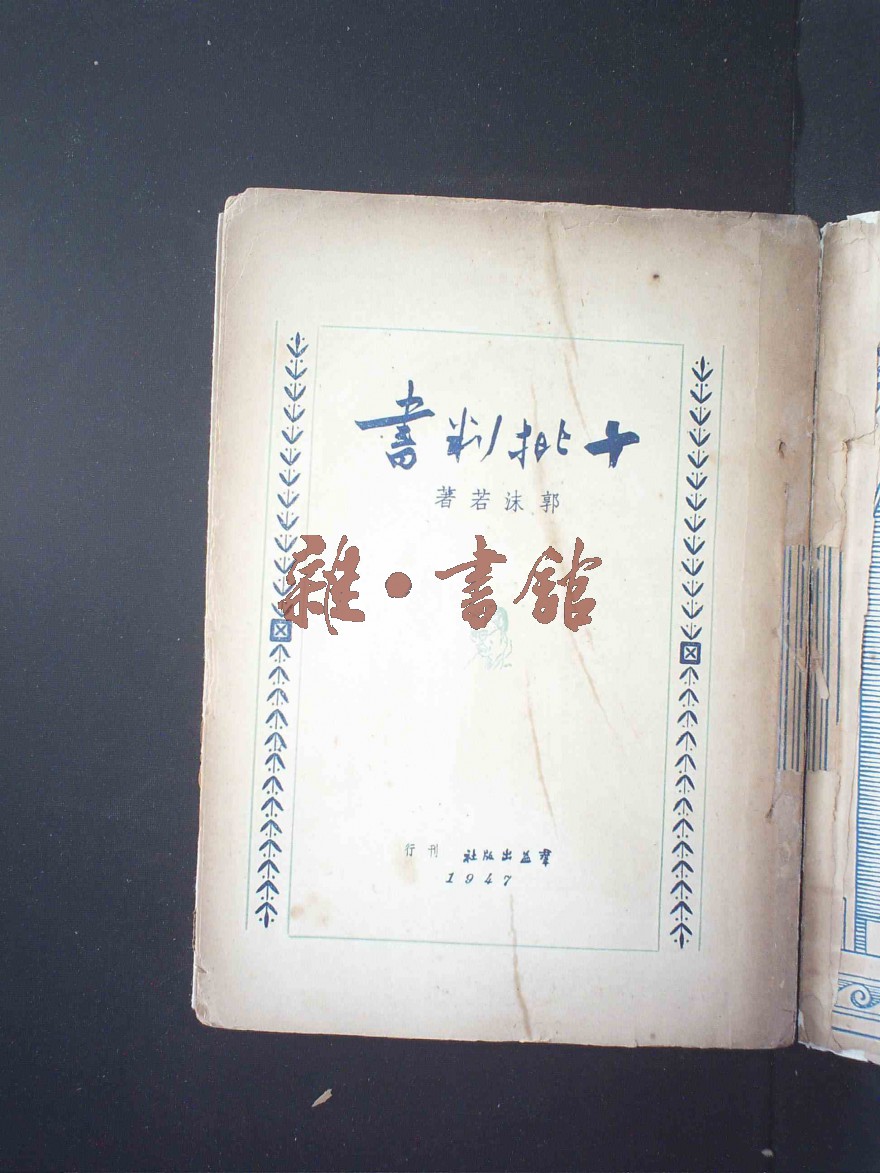 十批判書
郭沫若著
雜·書館
羣益出版社 刊行
1947